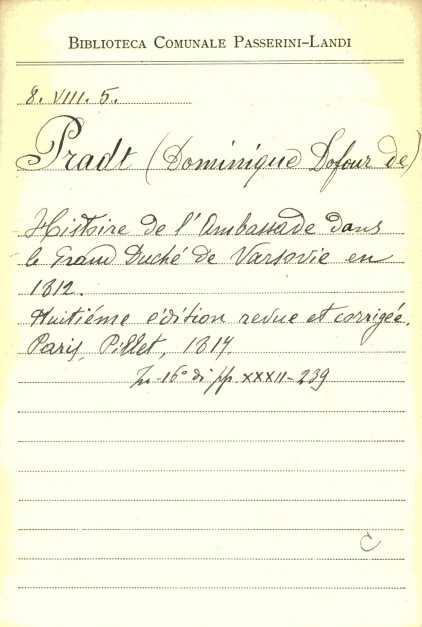 BIBLIOTECA COMUNALE PASSERINI-LANDI
8. VIII. 5.
Pradt (Dominique Dofour de)
Histoire de l'Ambassade dans
le Grand Duché de Varsovie en
1812.
Huitiéme édition revue et corrigée.
Paris, Pillet, 1817.
In-16° di pp XXXII-239
C